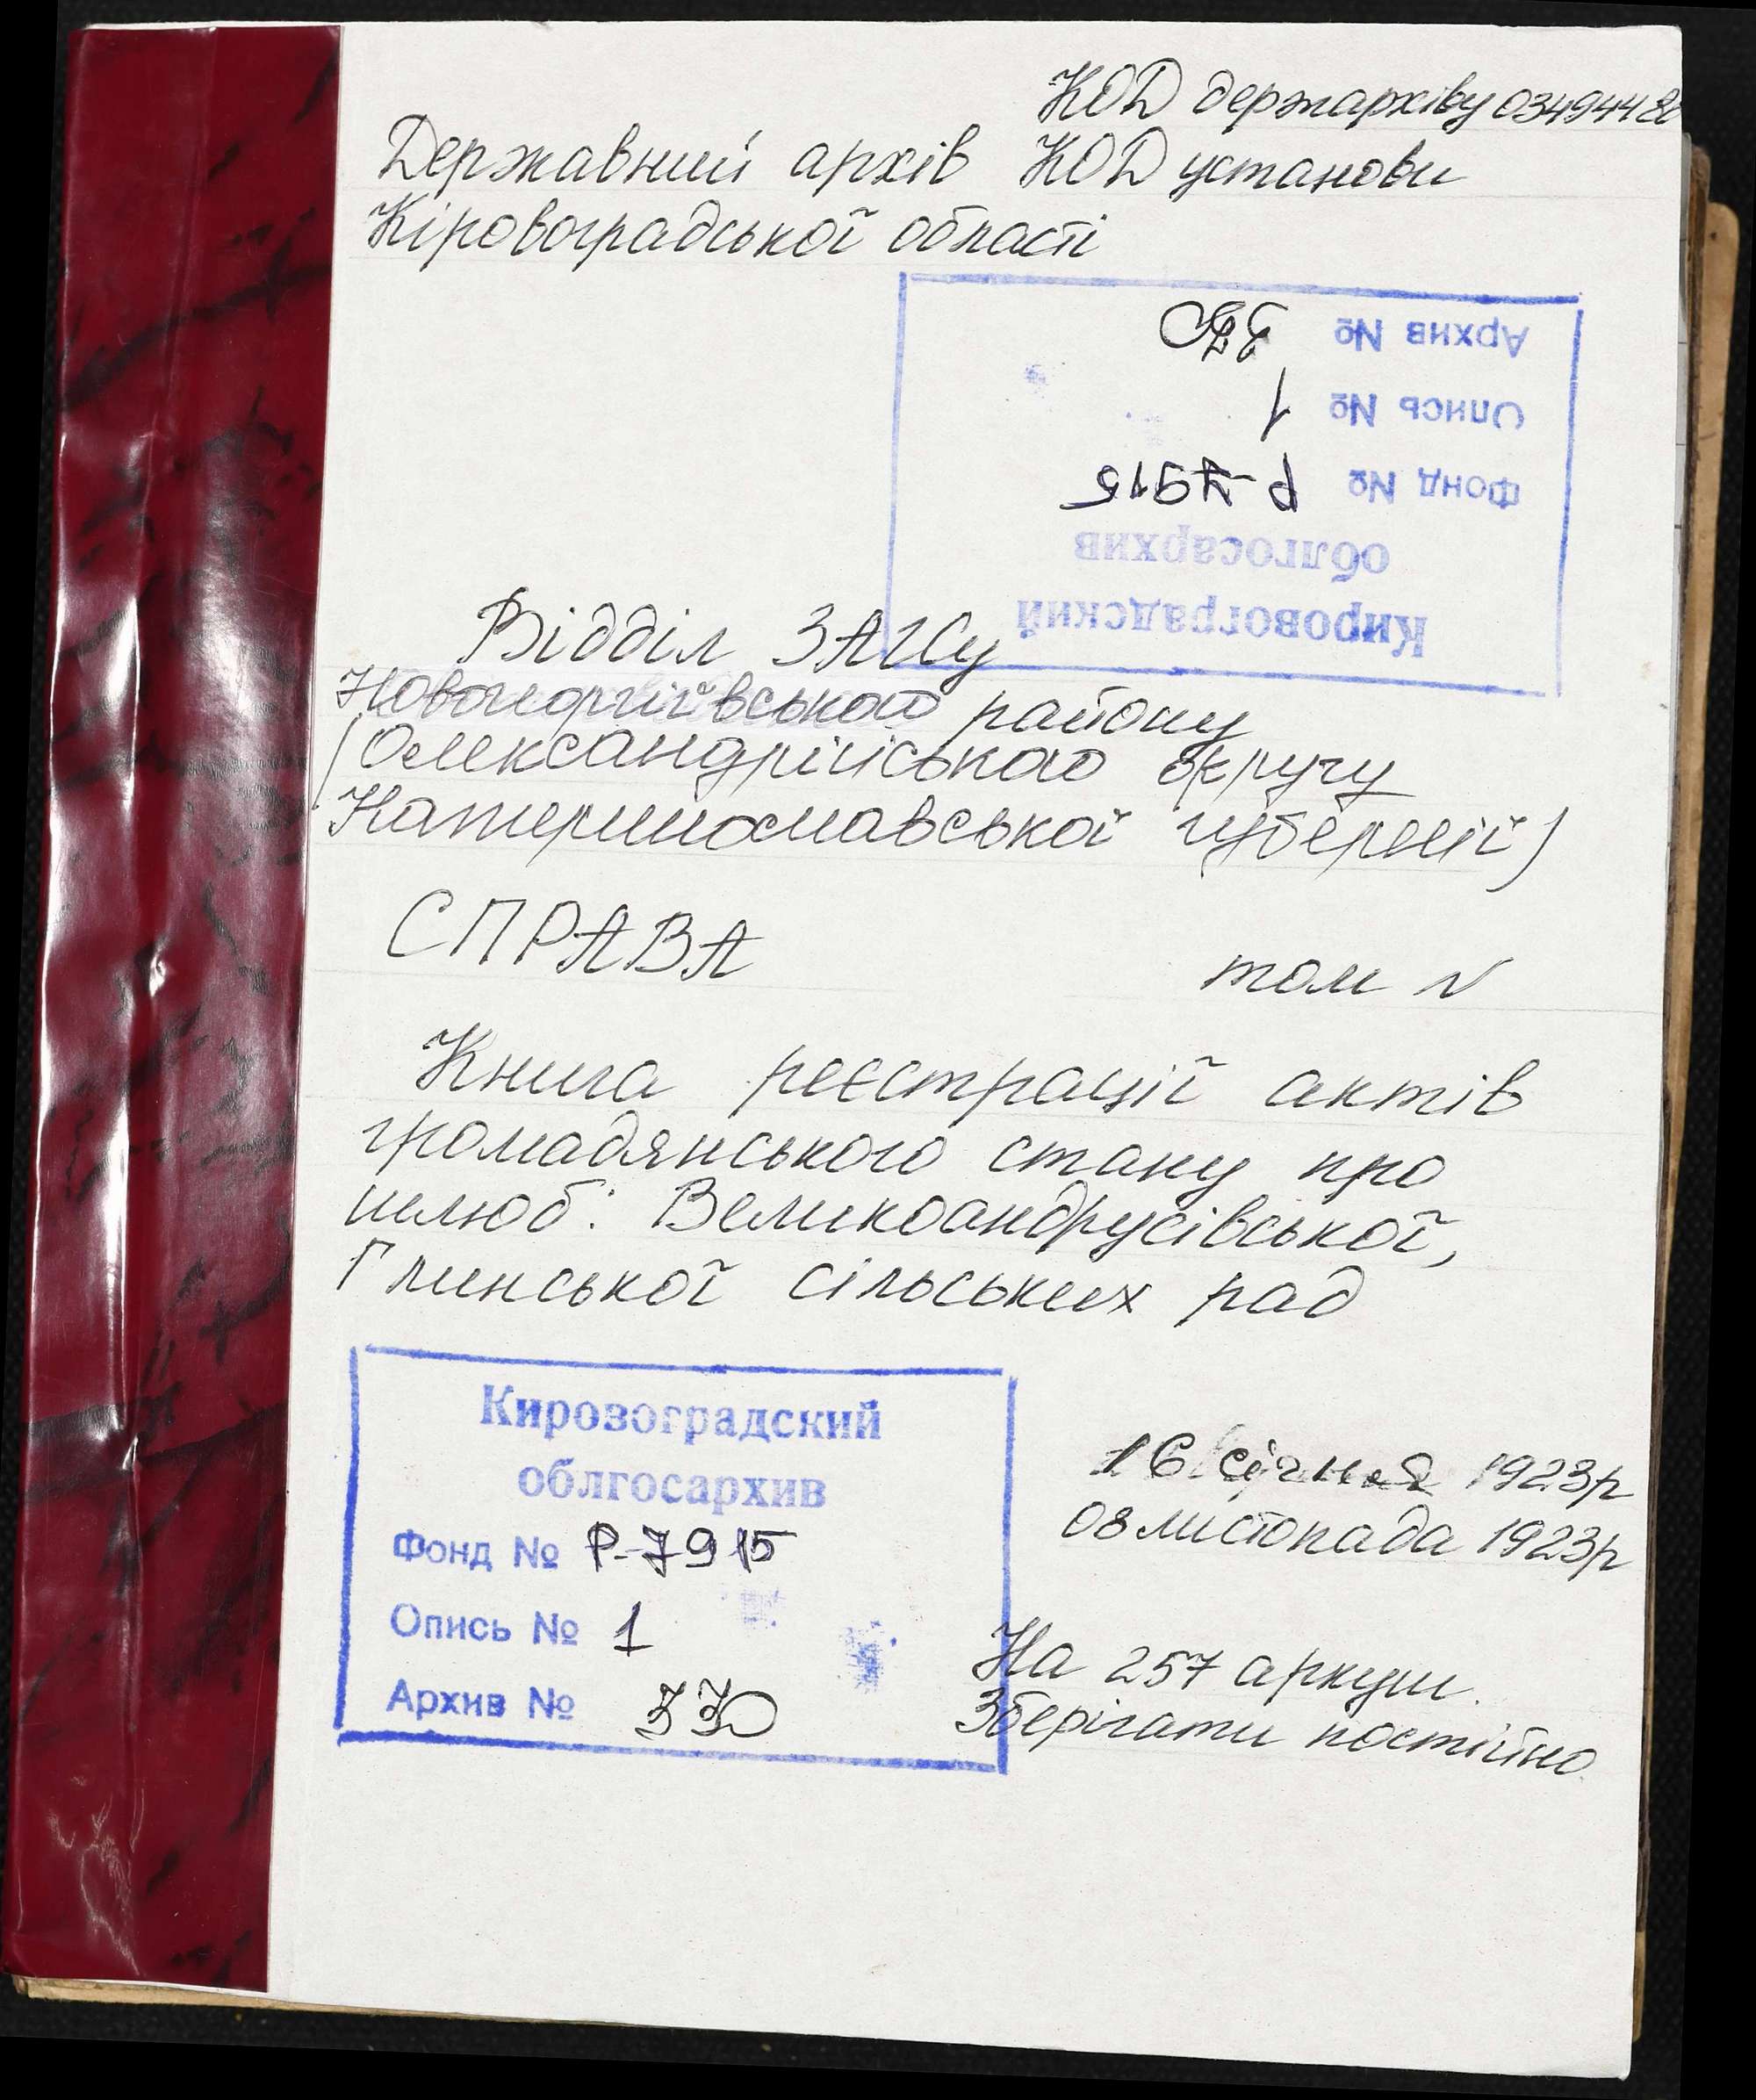 КОД держархіву 03494420
Державний архів КОД установи
Кіровоградської області
Кировоградский
облгосархив
Фонд № Р-7915
Опись № 1
Архив №
Відділ ЗАГСу
Новогеоргіївського району
(Олександрійського округу
Катеринославської губернії)
СПРАВА том №
Книга реєстрації актів
громадянського стану про
шлюб: Великоандрусівської,
Глинської сільських рад
Кировоградский
облгосархив
Фонд № Р-7915
Опись № 1
Архив № 330
16 січня 1923р
08 листопада 1923р
На 257 аркуш.
Зберігати постійно